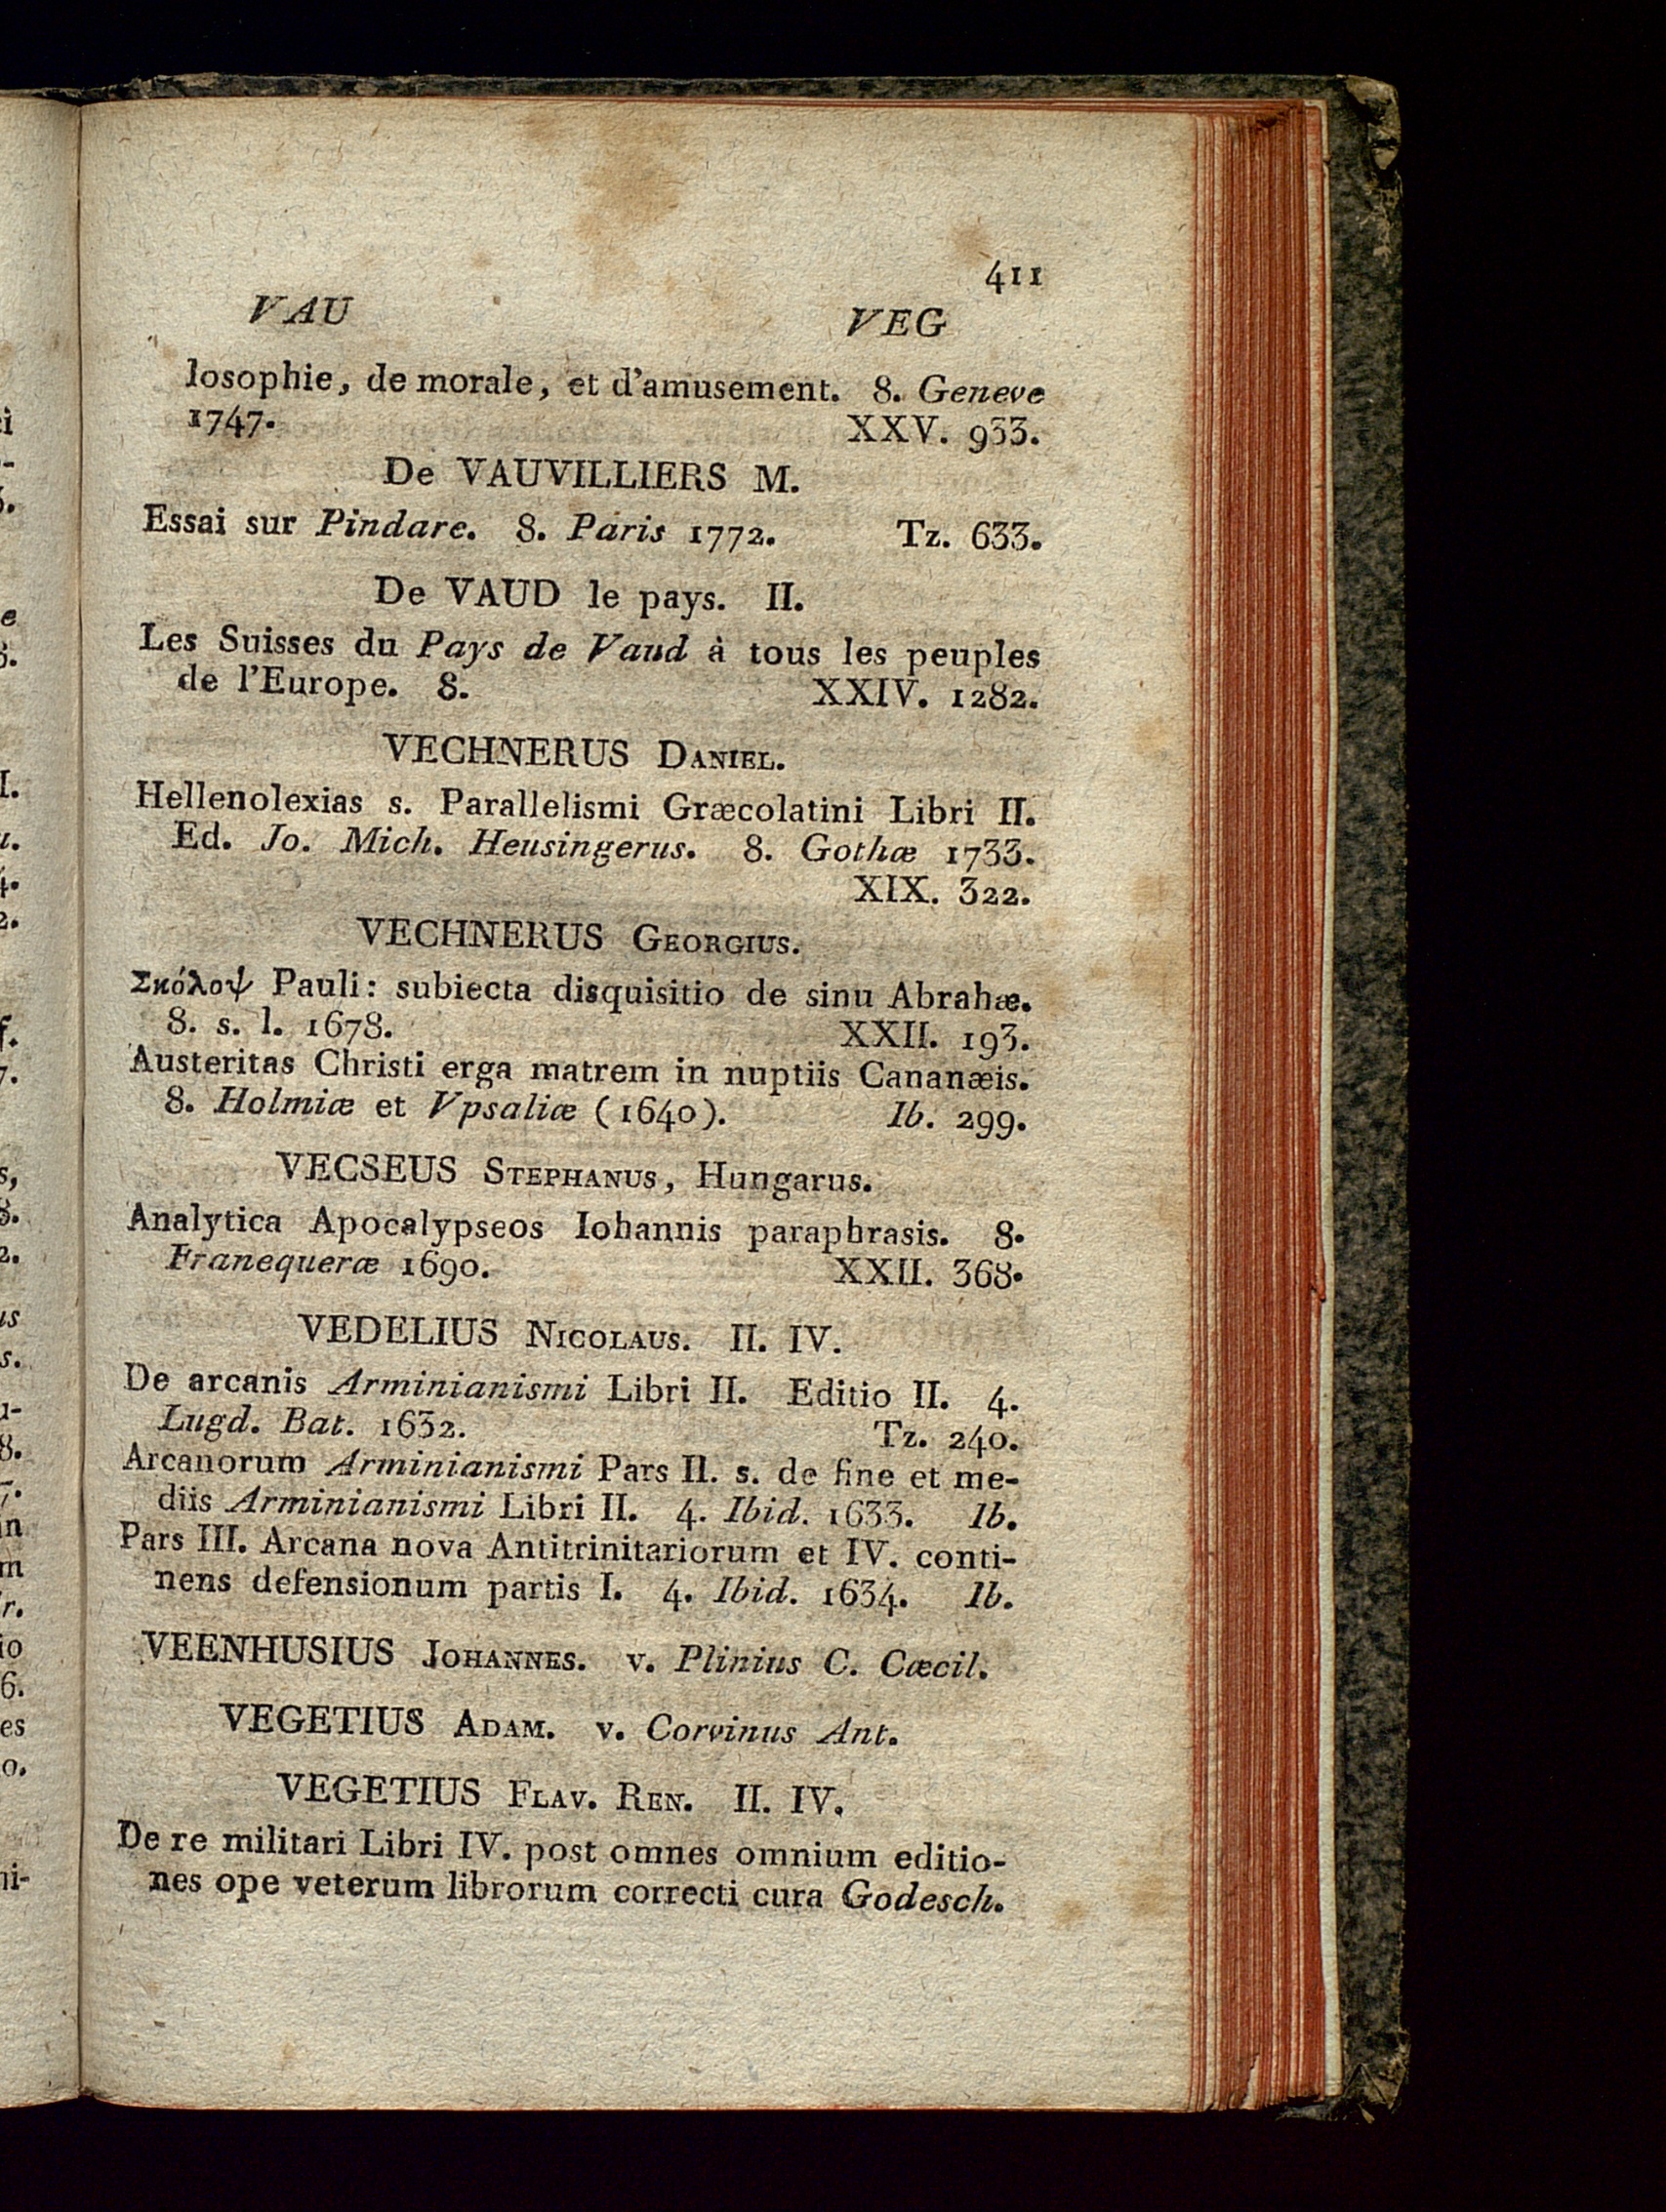 411
VAU VEG
losophie, de morale, et d'amusement. 8. Geneve
1747. XXV. 933.
De VAUVILLIERS M.
Essai sur Pindare. 8. Paris 1772. Tz. 633.
De VAUD le pays. II.
Les Suisses du Pays de Vaud à tous les peuples
de l'Europe. 8. XXIV. 1282.
VECHNERUS DANIEL.
Hellenolexias s. Parallelismi Græcolatini Libri II.
Ed. Jo. Mich. Heusingerus. 8. Gothæ 1733.
XIX. 322.
VECHNERUS GEORGIUS.
Σκόλοψ Pauli: subiecta disquisitio de sinu Abrahæ.
8. s. l. 1678. XXII. 193.
Austeritas Christi erga matrem in nuptiis Cananæis.
8. Holmiæ et Vpsaliæ (1640). Ib. 299.
VECSEUS STEPHANUS, Hungarus.
Analytica Apocalypseos Iohannis paraphrasis. 8.
Franequeræ 1690. XXII. 368.
VEDELIUS NICOLAUS. II. IV.
De arcanis Arminianismi Libri II. Editio II. 4.
Lugd. Bat. 1632. Tz. 240.
Arcanorum Arminianismi Pars II. s. de fine et me-
diis Arminianismi Libri II. 4. Ibid. 1633. Ib.
Pars III. Arcana nova Antitrinitariorum et IV. conti-
nens defensionum partis I. 4. Ibid. 1634. Ib.
VEENHUSIUS JOHANNES. v. Plinius C. Cæcil.
VEGETIUS ADAM. v. Corvinus Ant.
VEGETIUS FLAV. REN. II. IV.
De re militari Libri IV. post omnes omnium editio-
nes ope veterum librorum correcti cura Godesch.